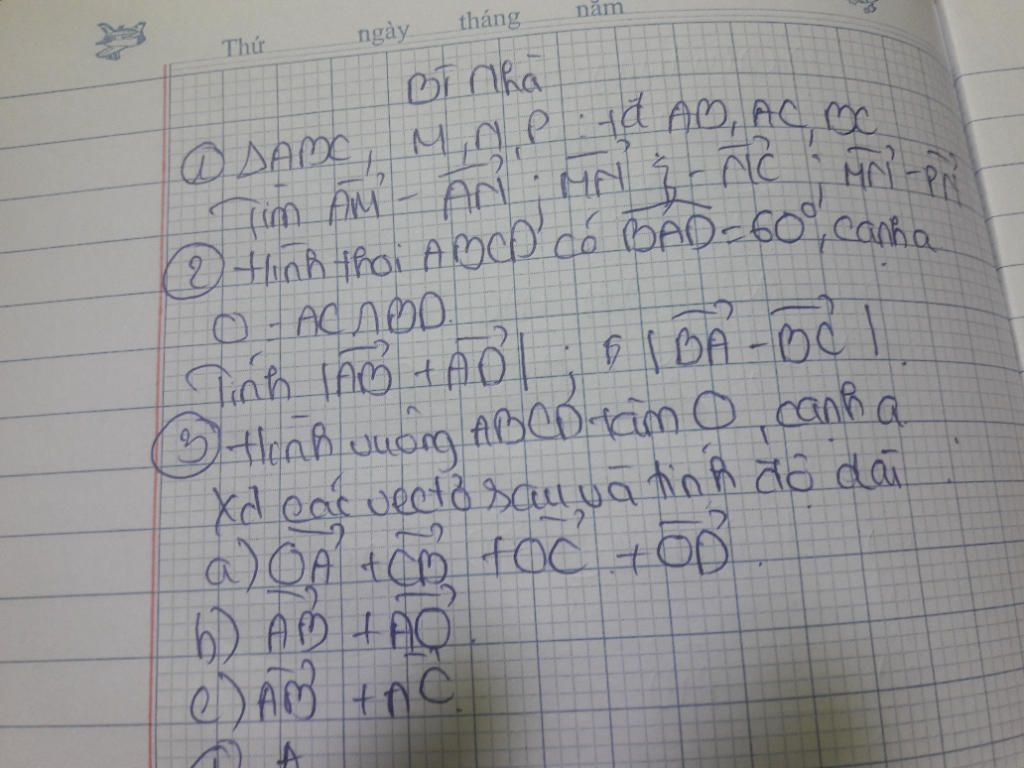 Thứ ngày tháng năm
BT Nhà
① ΔABC, M, N, P : tđ AB, AC, BC
Tìm AM - AN ; MN - NC ; MN - PN
② Hình thoi ABCD có BAD = 60°, cạnh a
O = AC ∩ BD.
Tính |AB + AD| ; |BA - BC|.
③ Hình vuông ABCD tâm O, cạnh a
Xđ các vectơ sau và tính độ dài
a) OA + OB + OC + OD.
b) AB + AD.
c) AB + AC.